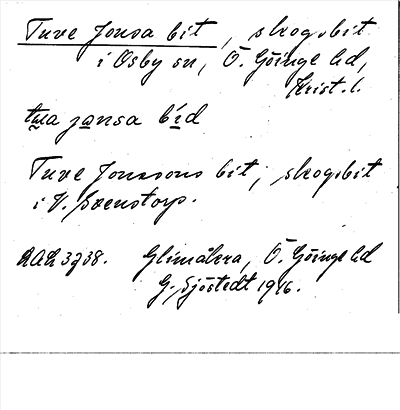 Tuve Jonsa bit, skogsbit
i Osby sn, Ö. Göinge hd,
Krist. l.
tua jansa bid
Tuve Jonssons bit, skogsbit
i V. Svenstorp.
3738. Glimåkra, Ö. Göinge hd
G. Sjöstedt 1946.